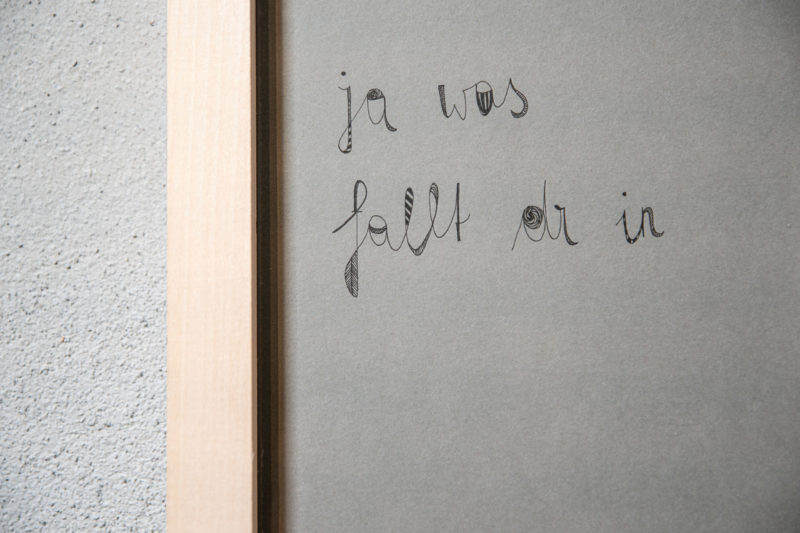 ja was
fallt dr in